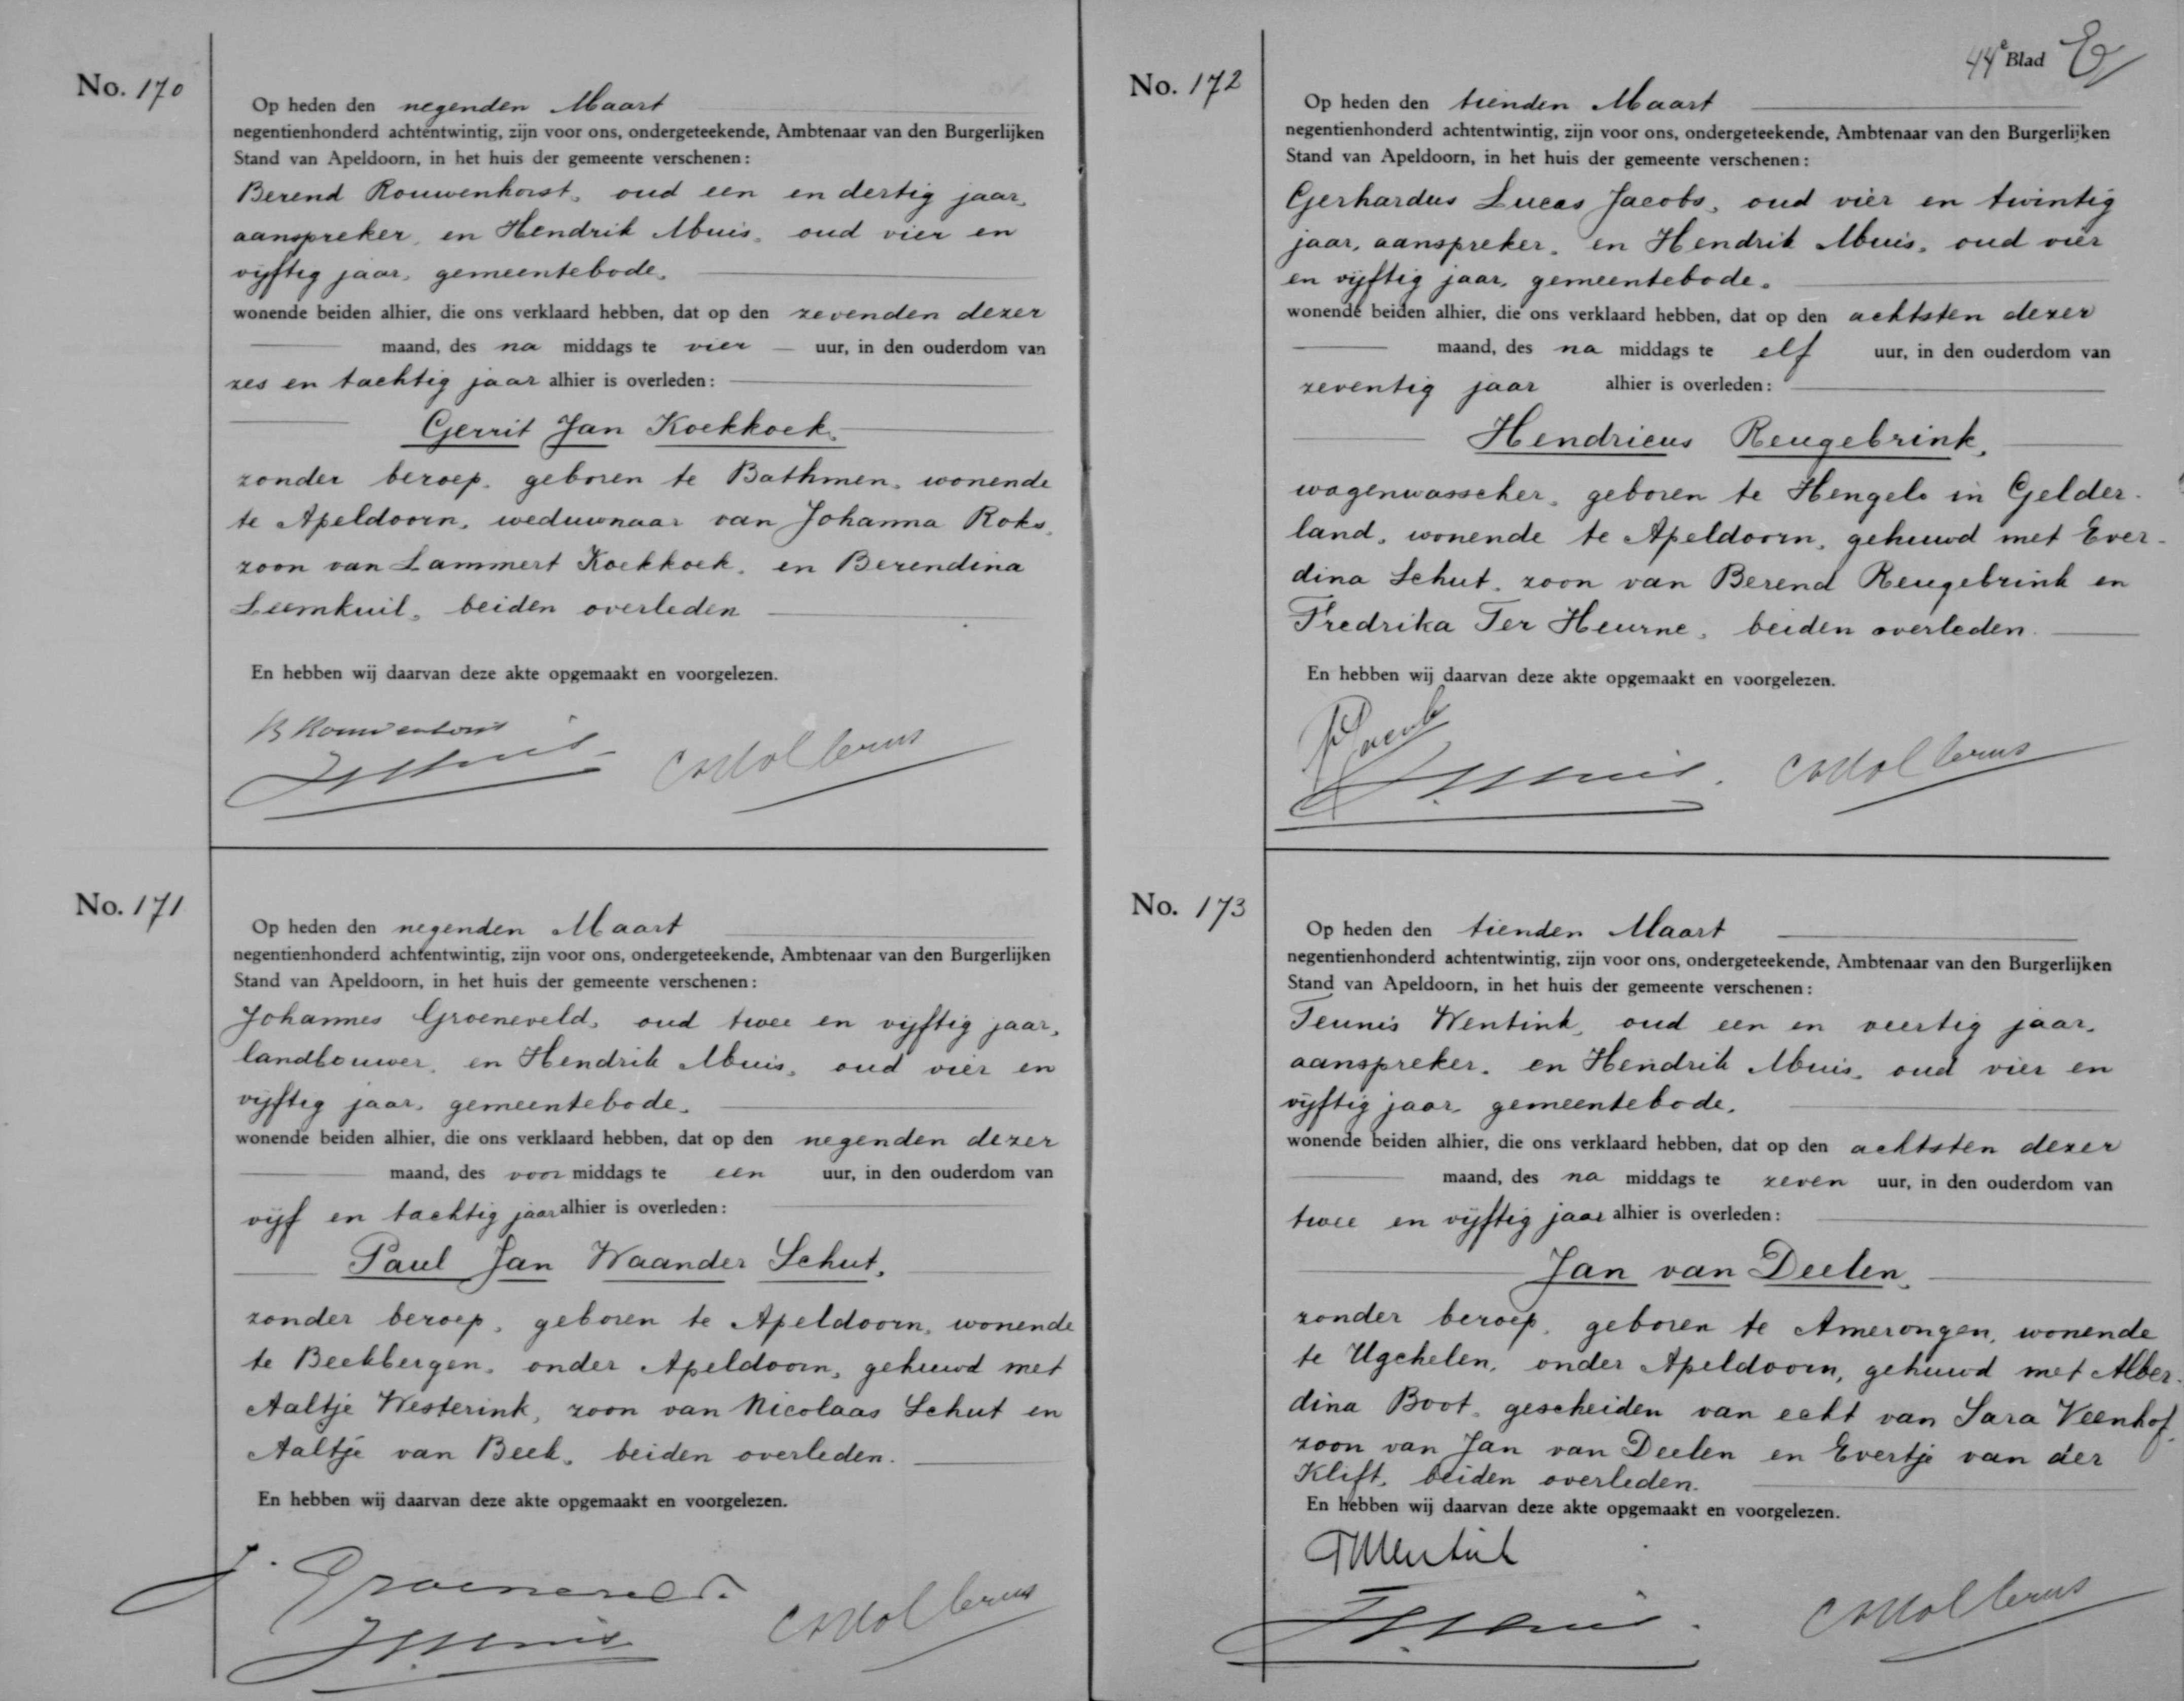 No. 170
Op heden den negenden Maart
negentienhonderd achtentwintig, zijn voor ons, ondergeteekende, Ambtenaar van den Burgerlijken
Stand van Apeldoorn, in het huis der gemeente verschenen:
Berend Rouwenhorst, oud een en dertig jaar,
aanspreker, en Hendrik Muis, oud vier en
vijftig jaar, gemeentebode,
wonende beiden alhier, die ons verklaard hebben, dat op den zevenden dezer
maand, des na middags te vier uur, in den ouderdom van
zes en tachtig jaar alhier is overleden:
Gerrit Jan Koekkoek,
zonder beroep, geboren te Bathmen, wonende
te Apeldoorn, weduwnaar van Johanna Roks,
zoon van Lammert Koekkoek, en Berendina
Leemkuil, beiden overleden
En hebben wij daarvan deze akte opgemaakt en voorgelezen.
B Rouwenhorst
H Muis
No. 171
Op heden den negenden Maart
negentienhonderd achtentwintig, zijn voor ons, ondergeteekende, Ambtenaar van den Burgerlijken
Stand van Apeldoorn, in het huis der gemeente verschenen:
Johannes Groeneveld, oud twee en vijftig jaar,
landbouwer, en Hendrik Muis, oud vier en
vijftig jaar, gemeentebode,
wonende beiden alhier, die ons verklaard hebben, dat op den negenden dezer
maand, des voor middags te een uur, in den ouderdom van
vijf en tachtig jaar alhier is overleden:
Paul Jan Waander Schut,
zonder beroep, geboren te Apeldoorn, wonende
te Beekbergen, onder Apeldoorn, gehuwd met
Aaltje Westerink, zoon van Nicolaas Schut en
Aaltje van Beek, beiden overleden.
En hebben wij daarvan deze akte opgemaakt en voorgelezen.
J. Groeneveld.
H Muis
44e Blad
No. 172
Op heden den tienden Maart
negentienhonderd achtentwintig, zijn voor ons, ondergeteekende, Ambtenaar van den Burgerlijken
Stand van Apeldoorn, in het huis der gemeente verschenen:
Gerhardus Lucas Jacobs, oud vier en twintig
jaar, aanspreker, en Hendrik Muis, oud vier
en vijftig jaar, gemeentebode,
wonende beiden alhier, die ons verklaard hebben, dat op den achtsten dezer
maand, des na middags te elf uur, in den ouderdom van
zeventig jaar alhier is overleden:
Hendricus Reugebrink,
wagenwasscher, geboren te Hengelo in Gelder-
land, wonende te Apeldoorn, gehuwd met Ever-
dina Schut, zoon van Berend Reugebrink en
Fredrika Ter Heurne, beiden overleden.
En hebben wij daarvan deze akte opgemaakt en voorgelezen.
Jacobs
H Muis.
No. 173
Op heden den tienden Maart
negentienhonderd achtentwintig, zijn voor ons, ondergeteekende, Ambtenaar van den Burgerlijken
Stand van Apeldoorn, in het huis der gemeente verschenen:
Teunis Wentink, oud een en veertig jaar,
aanspreker, en Hendrik Muis, oud vier en
vijftig jaar, gemeentebode,
wonende beiden alhier, die ons verklaard hebben, dat op den achtsten dezer
maand, des na middags te zeven uur, in den ouderdom van
twee en vijftig jaar alhier is overleden:
Jan van Deelen,
zonder beroep, geboren te Amerongen, wonende
te Ugchelen, onder Apeldoorn, gehuwd met Alber-
dina Boot, gescheiden van echt van Sara Veenhof,
zoon van Jan van Deelen en Evertje van der
Klift, beiden overleden.
En hebben wij daarvan deze akte opgemaakt en voorgelezen.
T Wentink
H Muis.